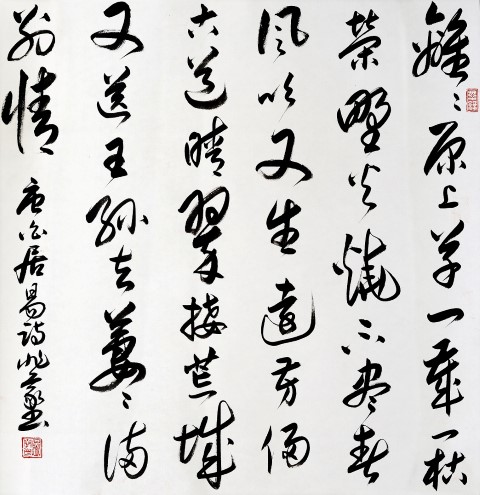 離〻原上草一歲一枯
榮野火燒不盡春
風吹又生遠芳侵
古道晴翠接荒城
又送王孫去萋〻滿
別情 唐白居易詩